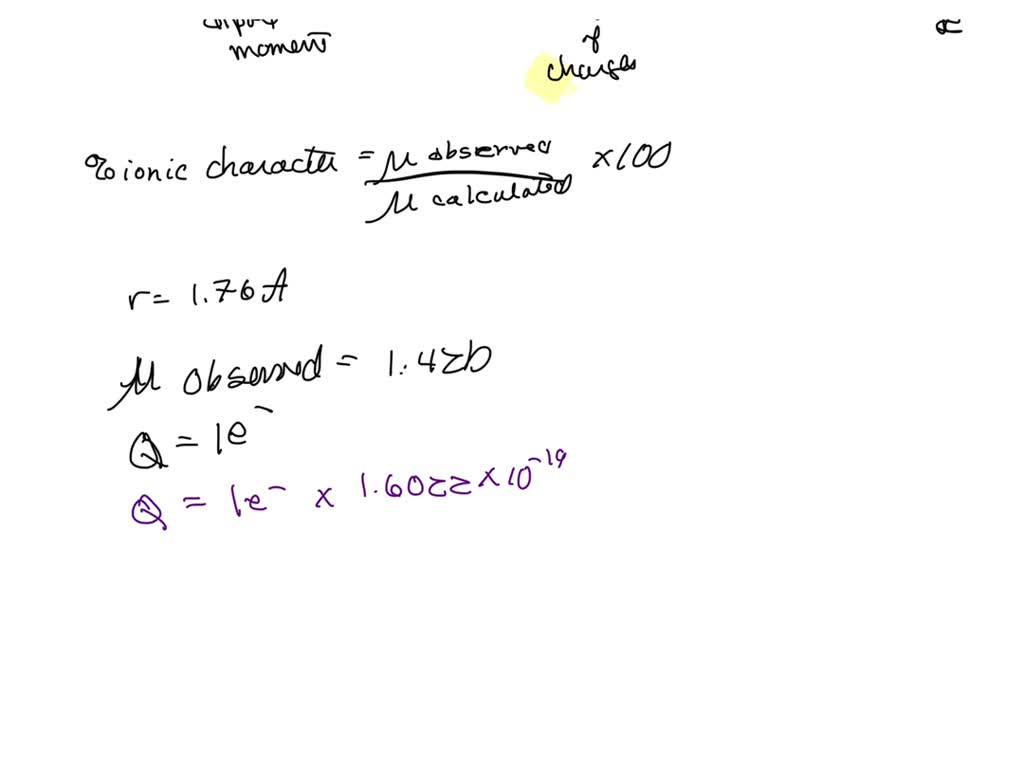 moment
of
charges
% ionic character = μ observed / μ calculated × 100
r = 1.76 A
μ observed = 1.42D
Q = 1e⁻
Q = 1e⁻ × 1.6022 × 10⁻¹⁹